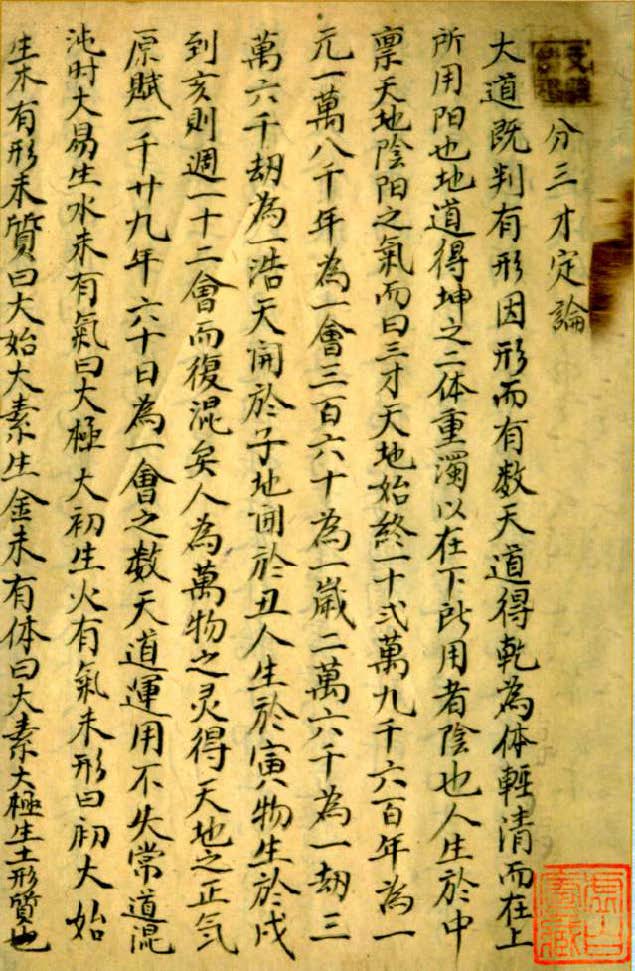 分三才定論
大道既判有形因形而有数天道得乾為体輕清而在上
所用阳也地道得坤之二体重濁以在下所用者陰也人生於中
禀天地陰阳之氣而曰三才天地始終一十弍萬九千六百年為一
元一萬八千年為一會三百六十為一歲二萬六千為一劫三
萬六千劫為一浩天開於子地開於丑人生於寅物生於戌
到亥則週一十二會而復混矣人為萬物之灵得天地之正气
原賦一千廿九年六十日為一會之数天道運用不失常道混
沌时大易生水未有氣曰大極大初生火有氣未形曰初大始
生木有形未質曰大始大素生金未有体曰大素大極生土形質也